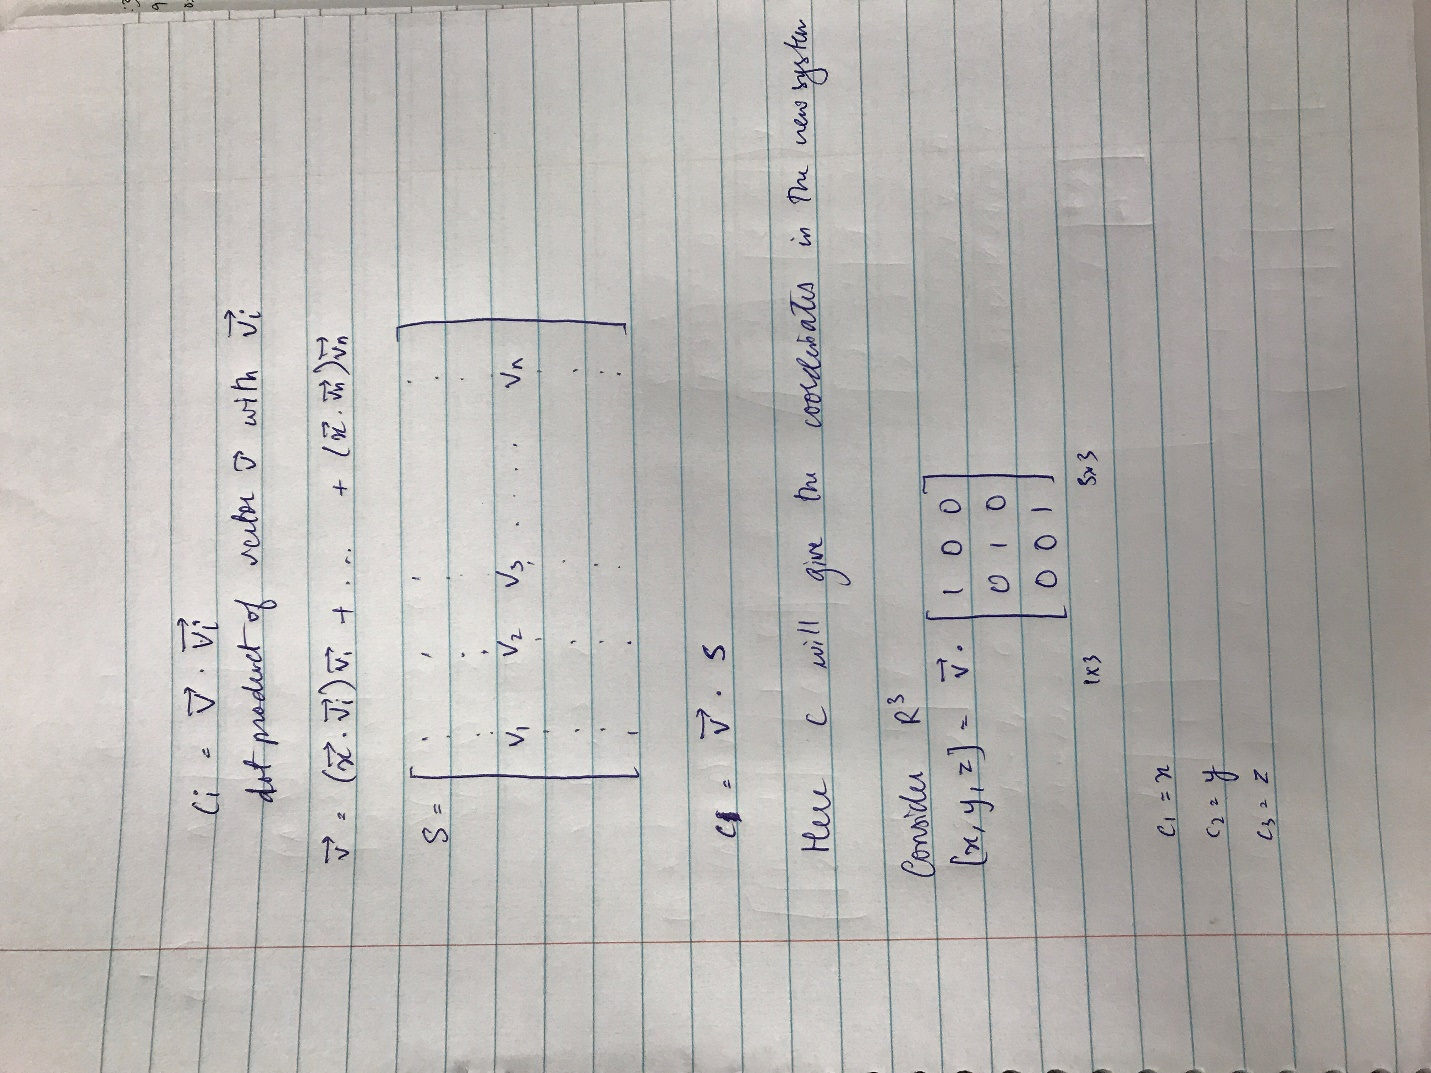 Ci = v⃗ . v⃗i
dot product of vector v⃗ with v⃗i
v⃗ = (x⃗ . v⃗i) v⃗1 + ... + (x⃗ . v⃗n) v⃗n
S = [ v1 v2 v3 .... vn ]
C = v⃗ . S
Here C will give the coordinates in the new system
Consider R³
[x, y, z] = v⃗ . [ 1 0 0
0 1 0
0 0 1 ]
1x3 3x3
C1 = x
C2 = y
C3 = z